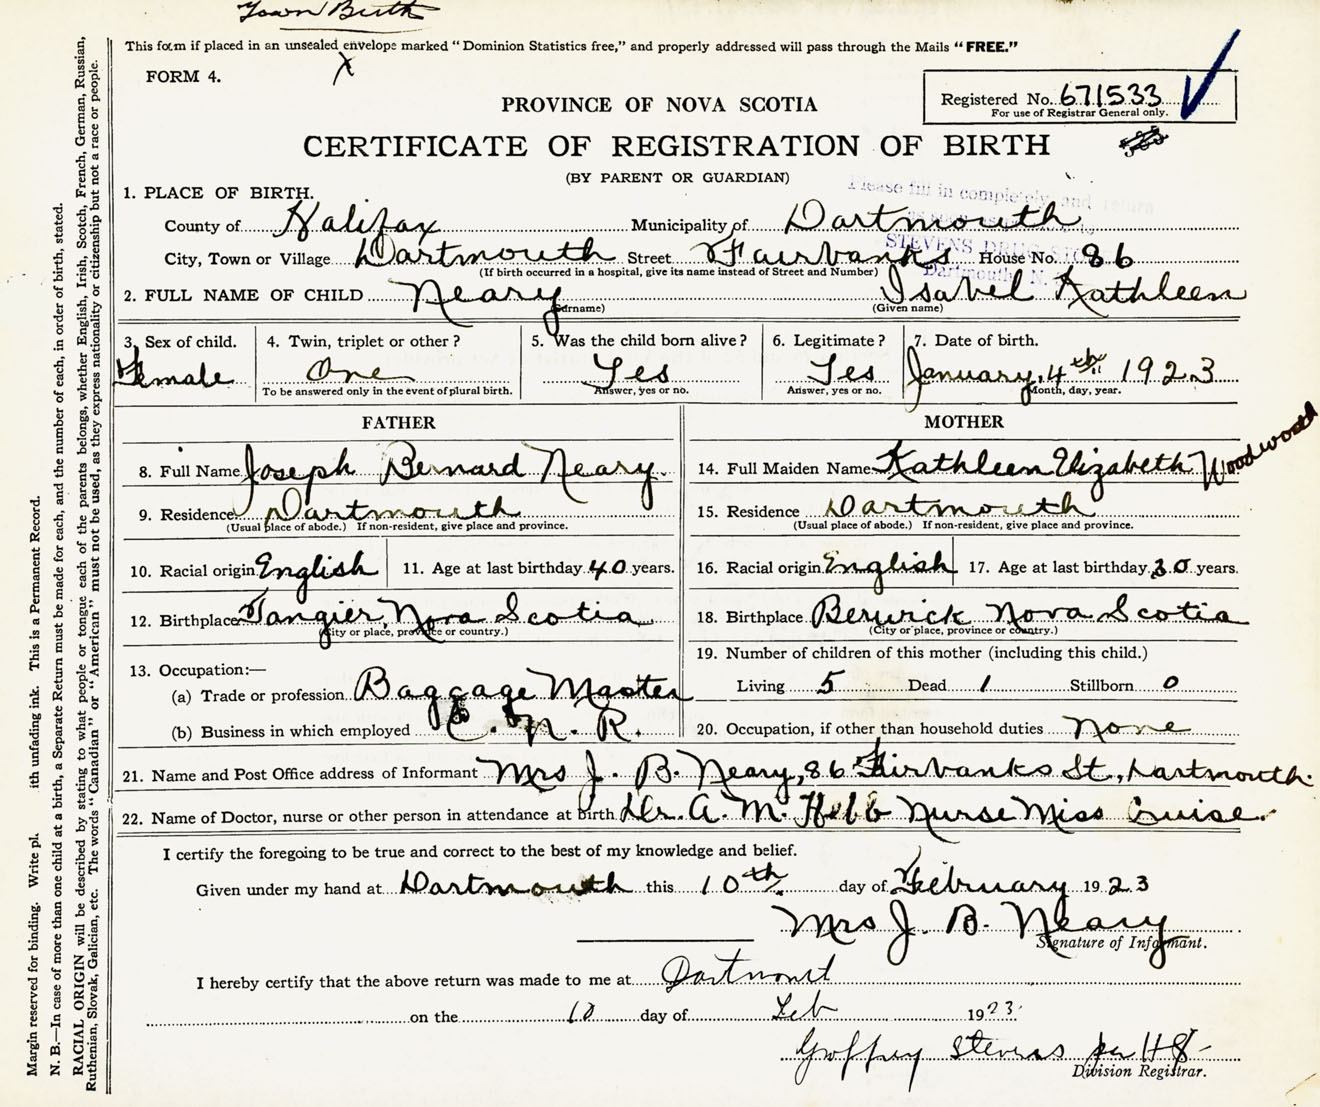 Town Birth
This form if placed in an unsealed envelope marked "Dominion Statistics free," and properly addressed will pass through the Mails "FREE."
X
FORM 4.
Registered No. 671533
For use of Registrar General only.
PROVINCE OF NOVA SCOTIA
CERTIFICATE OF REGISTRATION OF BIRTH
(BY PARENT OR GUARDIAN)
Please fill in completely and return
STEVENS DRUG STORE
Dartmouth N. S.
1. PLACE OF BIRTH.
County of Halifax Municipality of Dartmouth
City, Town or Village Dartmouth Street Fairbanks House No. 86
(If birth occurred in a hospital, give its name instead of Street and Number)
2. FULL NAME OF CHILD Neary Isabel Kathleen
(Surname) (Given name)
3. Sex of child. 4. Twin, triplet or other? 5. Was the child born alive? 6. Legitimate? 7. Date of birth.
Female One Yes Yes January, 4th 1923
To be answered only in the event of plural birth. Answer, yes or no. Answer, yes or no. Month, day, year.
FATHER MOTHER
8. Full Name Joseph Bernard Neary 14. Full Maiden Name Kathleen Elizabeth Woodword
9. Residence Dartmouth 15. Residence Dartmouth
(Usual place of abode.) If non-resident, give place and province. (Usual place of abode.) If non-resident, give place and province.
10. Racial origin English 11. Age at last birthday 40 years. 16. Racial origin English 17. Age at last birthday 30 years.
12. Birthplace Tangier, Nova Scotia 18. Birthplace Berwick Nova Scotia
(City or place, province or country.) (City or place, province or country.)
13. Occupation:— 19. Number of children of this mother (including this child.)
(a) Trade or profession Baggage Master Living 5 Dead 1 Stillborn 0
(b) Business in which employed C. N. R. 20. Occupation, if other than household duties None
21. Name and Post Office address of Informant Mrs J. B. Neary, 86 Fairbanks St., Dartmouth.
22. Name of Doctor, nurse or other person in attendance at birth Dr. A. M. Hebb Nurse Miss Cruise.
I certify the foregoing to be true and correct to the best of my knowledge and belief.
Given under my hand at Dartmouth this 10th day of February 1923
Mrs J. B. Neary
Signature of Informant.
I hereby certify that the above return was made to me at Dartmout
on the 10 day of Feb 1923.
Goffrey Stevens per H S-
Division Registrar.
Margin reserved for binding. Write pl. ith unfading ink. This is a Permanent Record.
N. B.—In case of more than one child at a birth, a Separate Return must be made for each, and the number of each, in order of birth, stated.
RACIAL ORIGIN will be described by stating to what people or tongue each of the parents belongs, whether English, Irish, Scotch, French, German, Russian,
Ruthenian, Slovak, Galician, etc. The words "Canadian" or "American" must not be used, as they express nationality or citizenship but not a race or people.